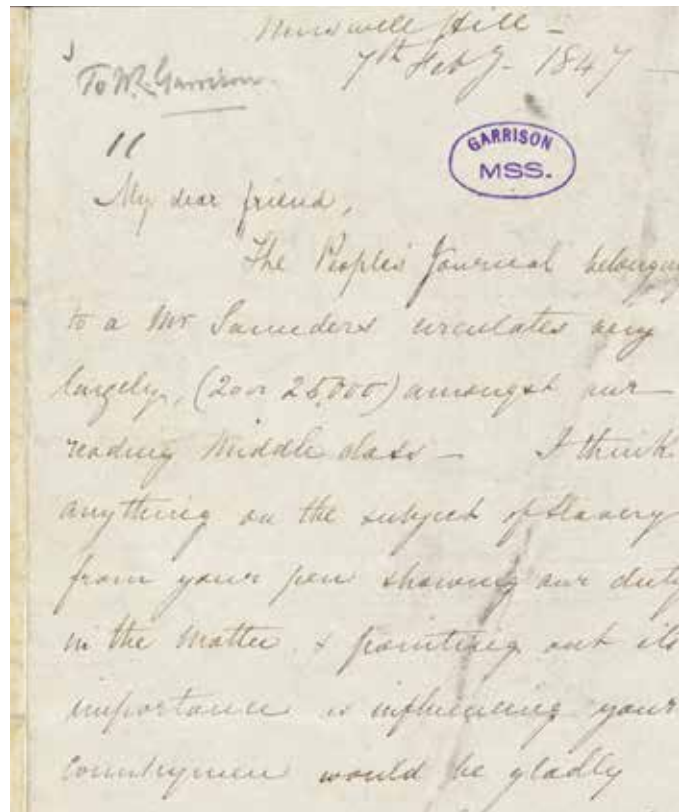 Muswell Hill -
7th Feby - 1847 -
To W. Garrison.
GARRISON
MSS.
My dear friend,
The People's Journal belonging
to a Mr Saunders circulates very
largely, (20 or 25,000) amongst our
reading Middle class - I think
anything on the subject of Slavery
from your pen showing our duty
in the matter & pointing out its
importance in influencing your
Countrymen would be gladly